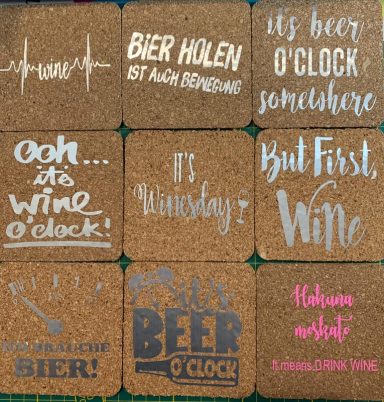 wine
BiER HOLEN
IST AUCH BEWEGUNG
it's beer
O'CLOCK
somewhere
Ooh...
it's
wine
o'clock!
IT'S
Winesday
But First,
Wine
ICH BRAUCHE
BIER!
it's
BEER
O'CLOCK
Hakuna
moskato
It means DRINK WINE